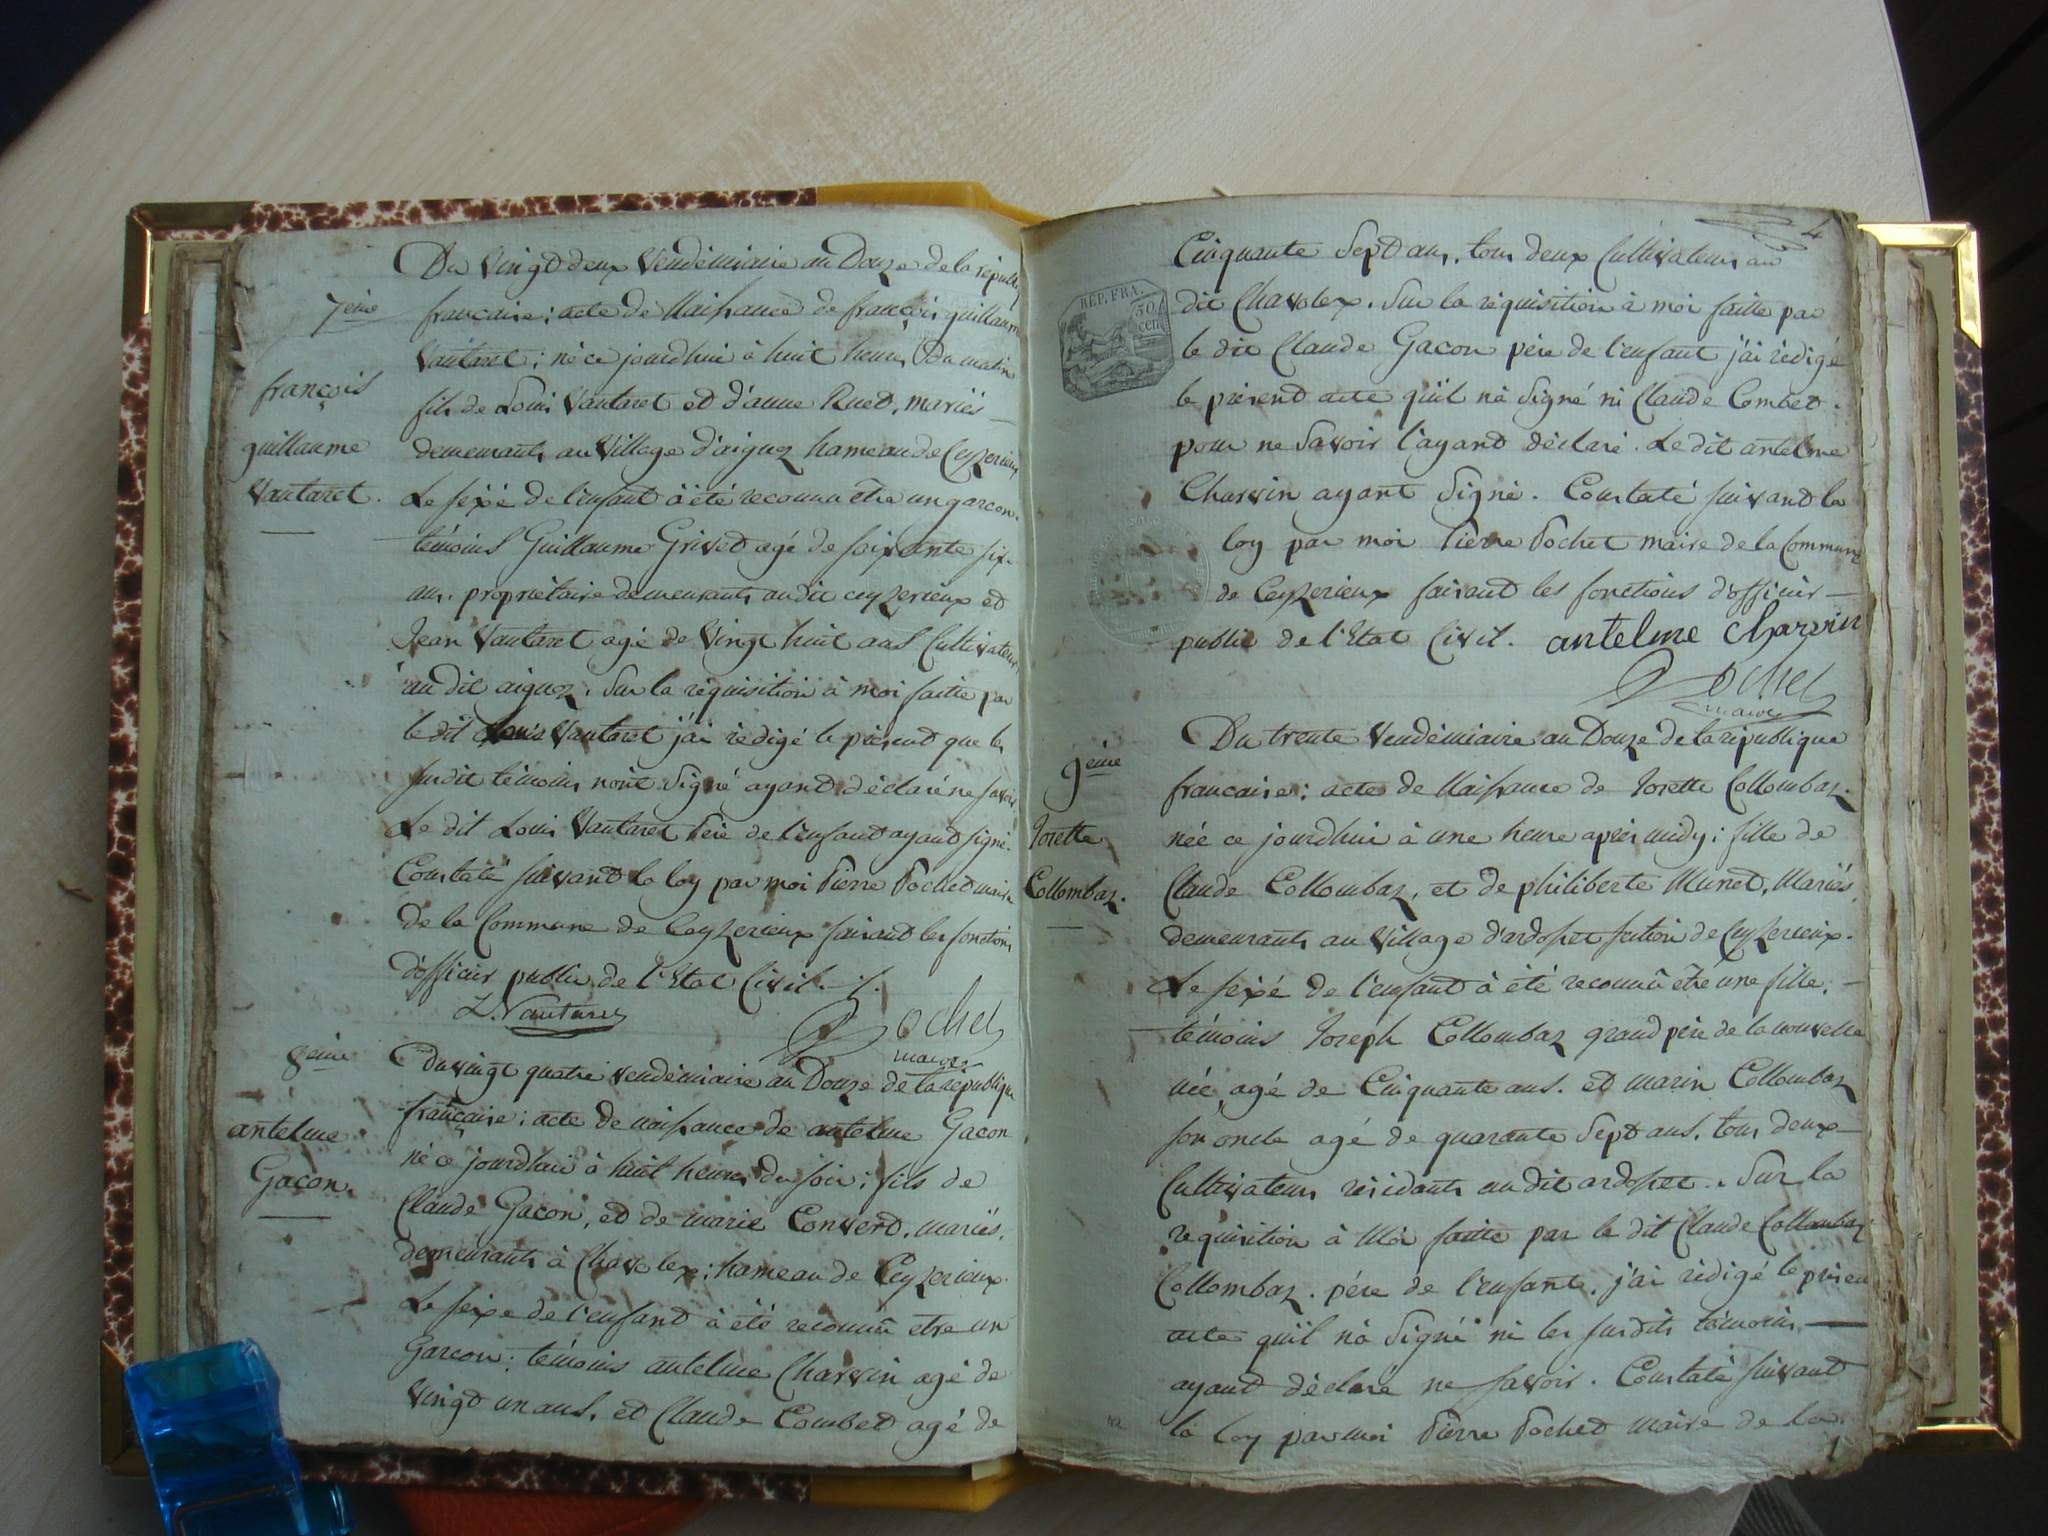 Du vingt deux vendémiaire an Douze de la républ
7eme
françaire ; acte de Naissance de françois guillaume
Vautaret ; né ce jourdhui à huit heures du matin
françois
fils de Louis Vautaret et d'anne Ruet, mariés
guillaume
demeurants au Village d'aignoz hameau de Ceyzerieux
Vautaret.
Le sexe de l'enfant à été reconnu être un garcon.
témoins Guillaume Grived agé de soixante six
ans, propriétaire demeurants au dit ceyzerieux et
Jean Vautaret agé de vingt huit ans Cultivateurs
au dit aignoz. Sur la réquisition à moi faitte par
le dit Louis Vautaret j'ai rédigé le présent que les
susdit témoins n'ont signé ayant déclaré ne savoir
Le dit Louis Vautaret Père de l'enfant ayant signé.
Constaté suivant la loy par moi Pierre Pochet maire
de la Commune de Ceyzerieux faisant les fonctions
d'officier public de l'Etat Civil.
L. Vautaret
Pochet
maire
8eme
Du vingt quatre vendémiaire an Douze de la république
française ; acte de naissance de antelme Gacon
antelme
né ce jourdhui à huit heures du soir ; fils de
Gacon.
Claude Gacon, et de marie Convert, mariés,
demeurants à Chavolex ; hameau de Ceyzerieux.
Le sexe de l'enfant à été reconnû etre un
Garcon ; témoins antelme Charvin agé de
vingt un ans, et Claude Combet agé de
4
Cinquante Sept ans, tous deux Cultivateurs au
REP. FRA.
50 cen
dit Chavolex. Sur la réquisition à moi faitte par
le dit Claude Gacon père de l'enfant j'ai rédigé
le présent acte quil nà Signé ni Claude Combet.
pour ne Savoir l'ayant déclaré. Le dit antelme
Charvin ayant Signé. Constaté suivant la
loy par moi Pierre Pochet maire de la Commune
de Ceyzerieux faisant les fonctions d'officier
public de l'Etat Civil. antelme charvin
Pochet
maire
Du trente Vendémiaire an Douze de la république
9eme
francaise ; acte de Naissance de Josette Collombaz.
Josette
née ce jourdhui à une heure après midy ; fille de
Collombaz.
Claude Collombaz, et de philiberte Munet, Mariés,
demeurants au Village d'ardosset section de Ceyzerieux.
Le sexe de l'enfant à été reconnû etre une fille.
témoins Joseph Collombaz grand père de la nouvelle
née, agé de Cinquante ans. et marin Collombaz
son oncle agé de quarante Sept ans, tous deux
Cultivateurs résidants au dit ardosset. Sur la
requisition à Moi faitte par le dit Claude Collombaz
Collombaz. père de l'enfant. j'ai rédigé le présent
acte quil nà Signé ni les susdits témoins
ayant déclaré ne savoir. Constaté suivant
la loy par moi Pierre Pochet maire de la